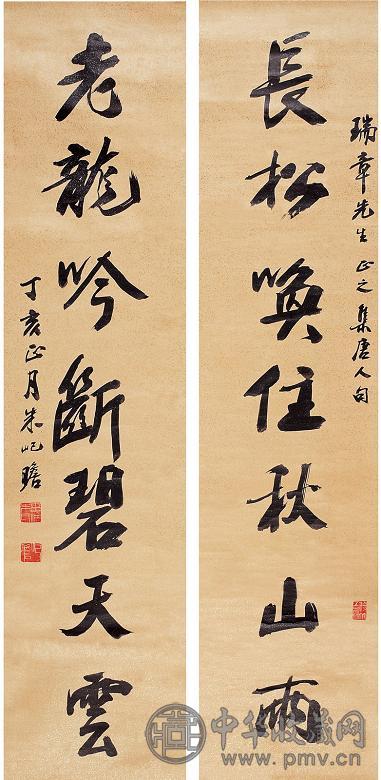 瑞章先生正之集唐人句
長松喚住秋山雨
老龍吟斷碧天雲
丁亥正月朱屺瞻
中华收藏网
www.pmv.cn